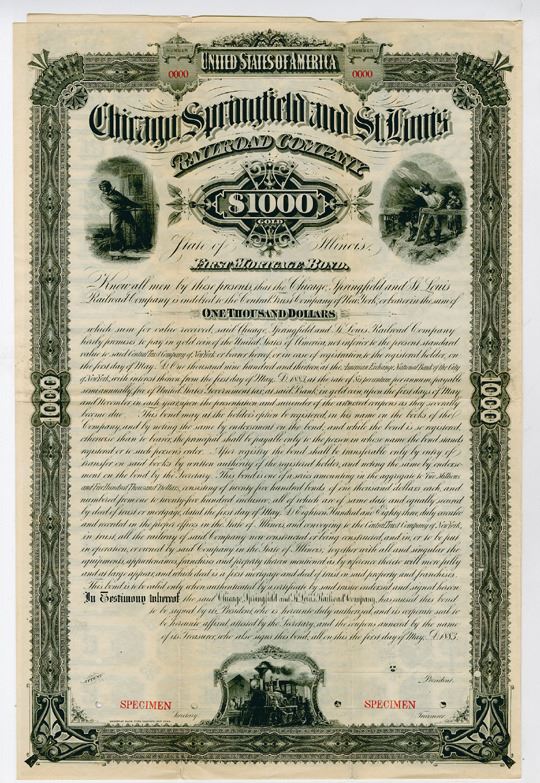 NUMBER
0000
UNITED STATES OF AMERICA
NUMBER
0000
Chicago Springfield and St. Louis
RAILROAD COMPANY
$1000
GOLD
State of Illinois.
FIRST MORTGAGE BOND.
Know all men by these presents, that the Chicago, Springfield and St. Louis
Railroad Company is indebted to the Central Trust Company of New York, or bearer in the sum of
ONE THOUSAND DOLLARS
which sum for value received, said Chicago, Springfield and St. Louis Railroad Company
hereby promises to pay in gold coin of the United States of America, not inferior to the present standard
value to said Central Trust Company of New York or bearer hereof, or in case of registration to the registered holder, on
the first day of May A.D. One thousand nine hundred and thirteen at the American Exchange National Bank of the City
of New York, with interest thereon from the first day of May A.D. 1883, at the rate of Six per centum per annum, payable
semi annually, free of United States Government tax, at said Bank, in gold coin, upon the first days of May
and November in each year, upon the presentation and surrender of the annexed coupons as they severally
become due. This bond may at the holder's option be registered in his name on the books of the
Company, and by noting the same by endorsement on the bond, and while the bond is so registered,
otherwise than to bearer, the principal shall be payable only to the person in whose name the bond stands
registered or to such person's order. After registry the bond shall be transferable only by entry of
transfer on said books by written authority of the registered holder, and noting the same by endorse-
ment on the bond by the Secretary. This bond is one of a series amounting in the aggregate to Two Millions
and Five Hundred Thousand Dollars, consisting of twenty five hundred bonds of one thousand dollars each, and
numbered from one to twenty five hundred inclusive, all of which are of same date and equally secured
by deed of trust or mortgage, dated the first day of May A.D. Eighteen Hundred and Eighty three, duly executed
and recorded in the proper offices in the State of Illinois, and conveying to the Central Trust Company of New York,
in trust, all the railway of said Company now constructed or being constructed, and in, or to be put
in operation, or owned by said Company in the State of Illinois, together with all and singular the
equipments, appurtenances, franchises and property therein mentioned as by reference thereto will more fully
and at large appear, and which deed is a first mortgage and deed of trust on said property and franchises.
This bond is to be valid only when authenticated by a certificate by said trustee endorsed and signed hereon.
In Testimony Whereof the said Chicago, Springfield and St. Louis Railroad Company, has caused this bond
to be signed by its President, who is hereunto duly authorized, and its corporate seal to
be hereunto affixed, attested by the Secretary, and the coupons annexed by the name
of its Treasurer, who also signs this bond, all on this the first day of May A.D. 1883.
ATTEST
President.
SPECIMEN
SPECIMEN
Secretary.
Treasurer.
1000
1000